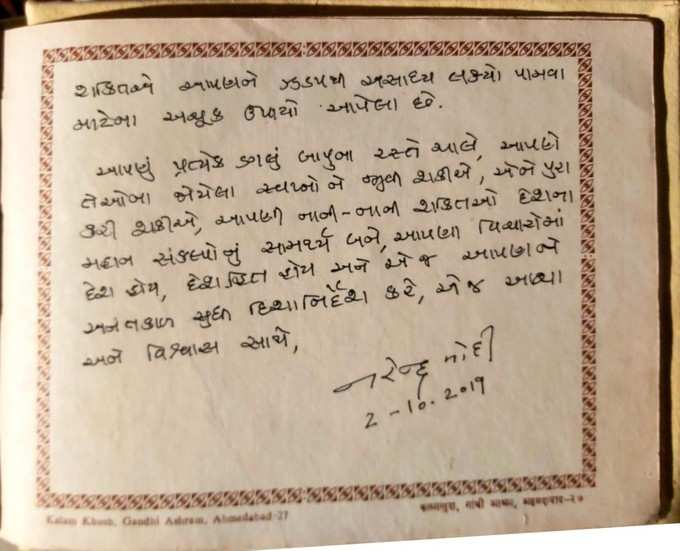 શક્તિએ આપણને ઝડપથી અસાધ્ય લક્ષ્યો પામવા
માટેના અચૂક ઉપાયો આપેલા છે.
આપણું પ્રત્યેક ડગલું બાપુના રસ્તે ચાલે, આપણે
તેઓના જોયેલા સ્વપ્નોને જીવી શકીએ, એને પુરા
કરી શકીએ, આપણી નાની-નાની શક્તિઓ દેશના
મહાન સંકલ્પોનું સામર્થ્ય બને, આપણા વિચારોમાં
દેશ હોય, દેશહિત હોય અને એ જ આપણને
અનંતકાળ સુધી દિશાનિર્દેશ કરે, એ જ આસ્થા
અને વિશ્વાસ સાથે,
નરેન્દ્ર મોદી
2-10-2019
Kalam Khush, Gandhi Ashram, Ahmedabad-27
कलमखुश, गांधी आश्रम, अहमदाबाद-२७